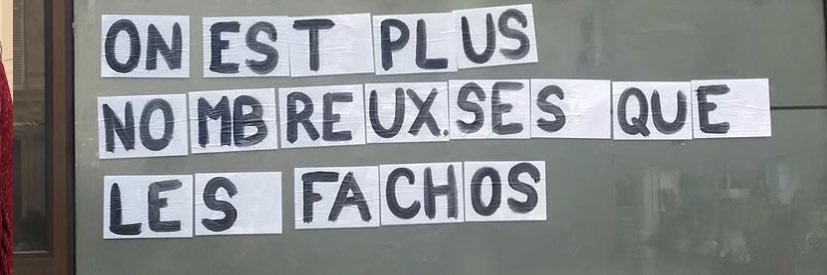 ON EST PLUS
NOMBREUX.SES QUE
LES FACHOS